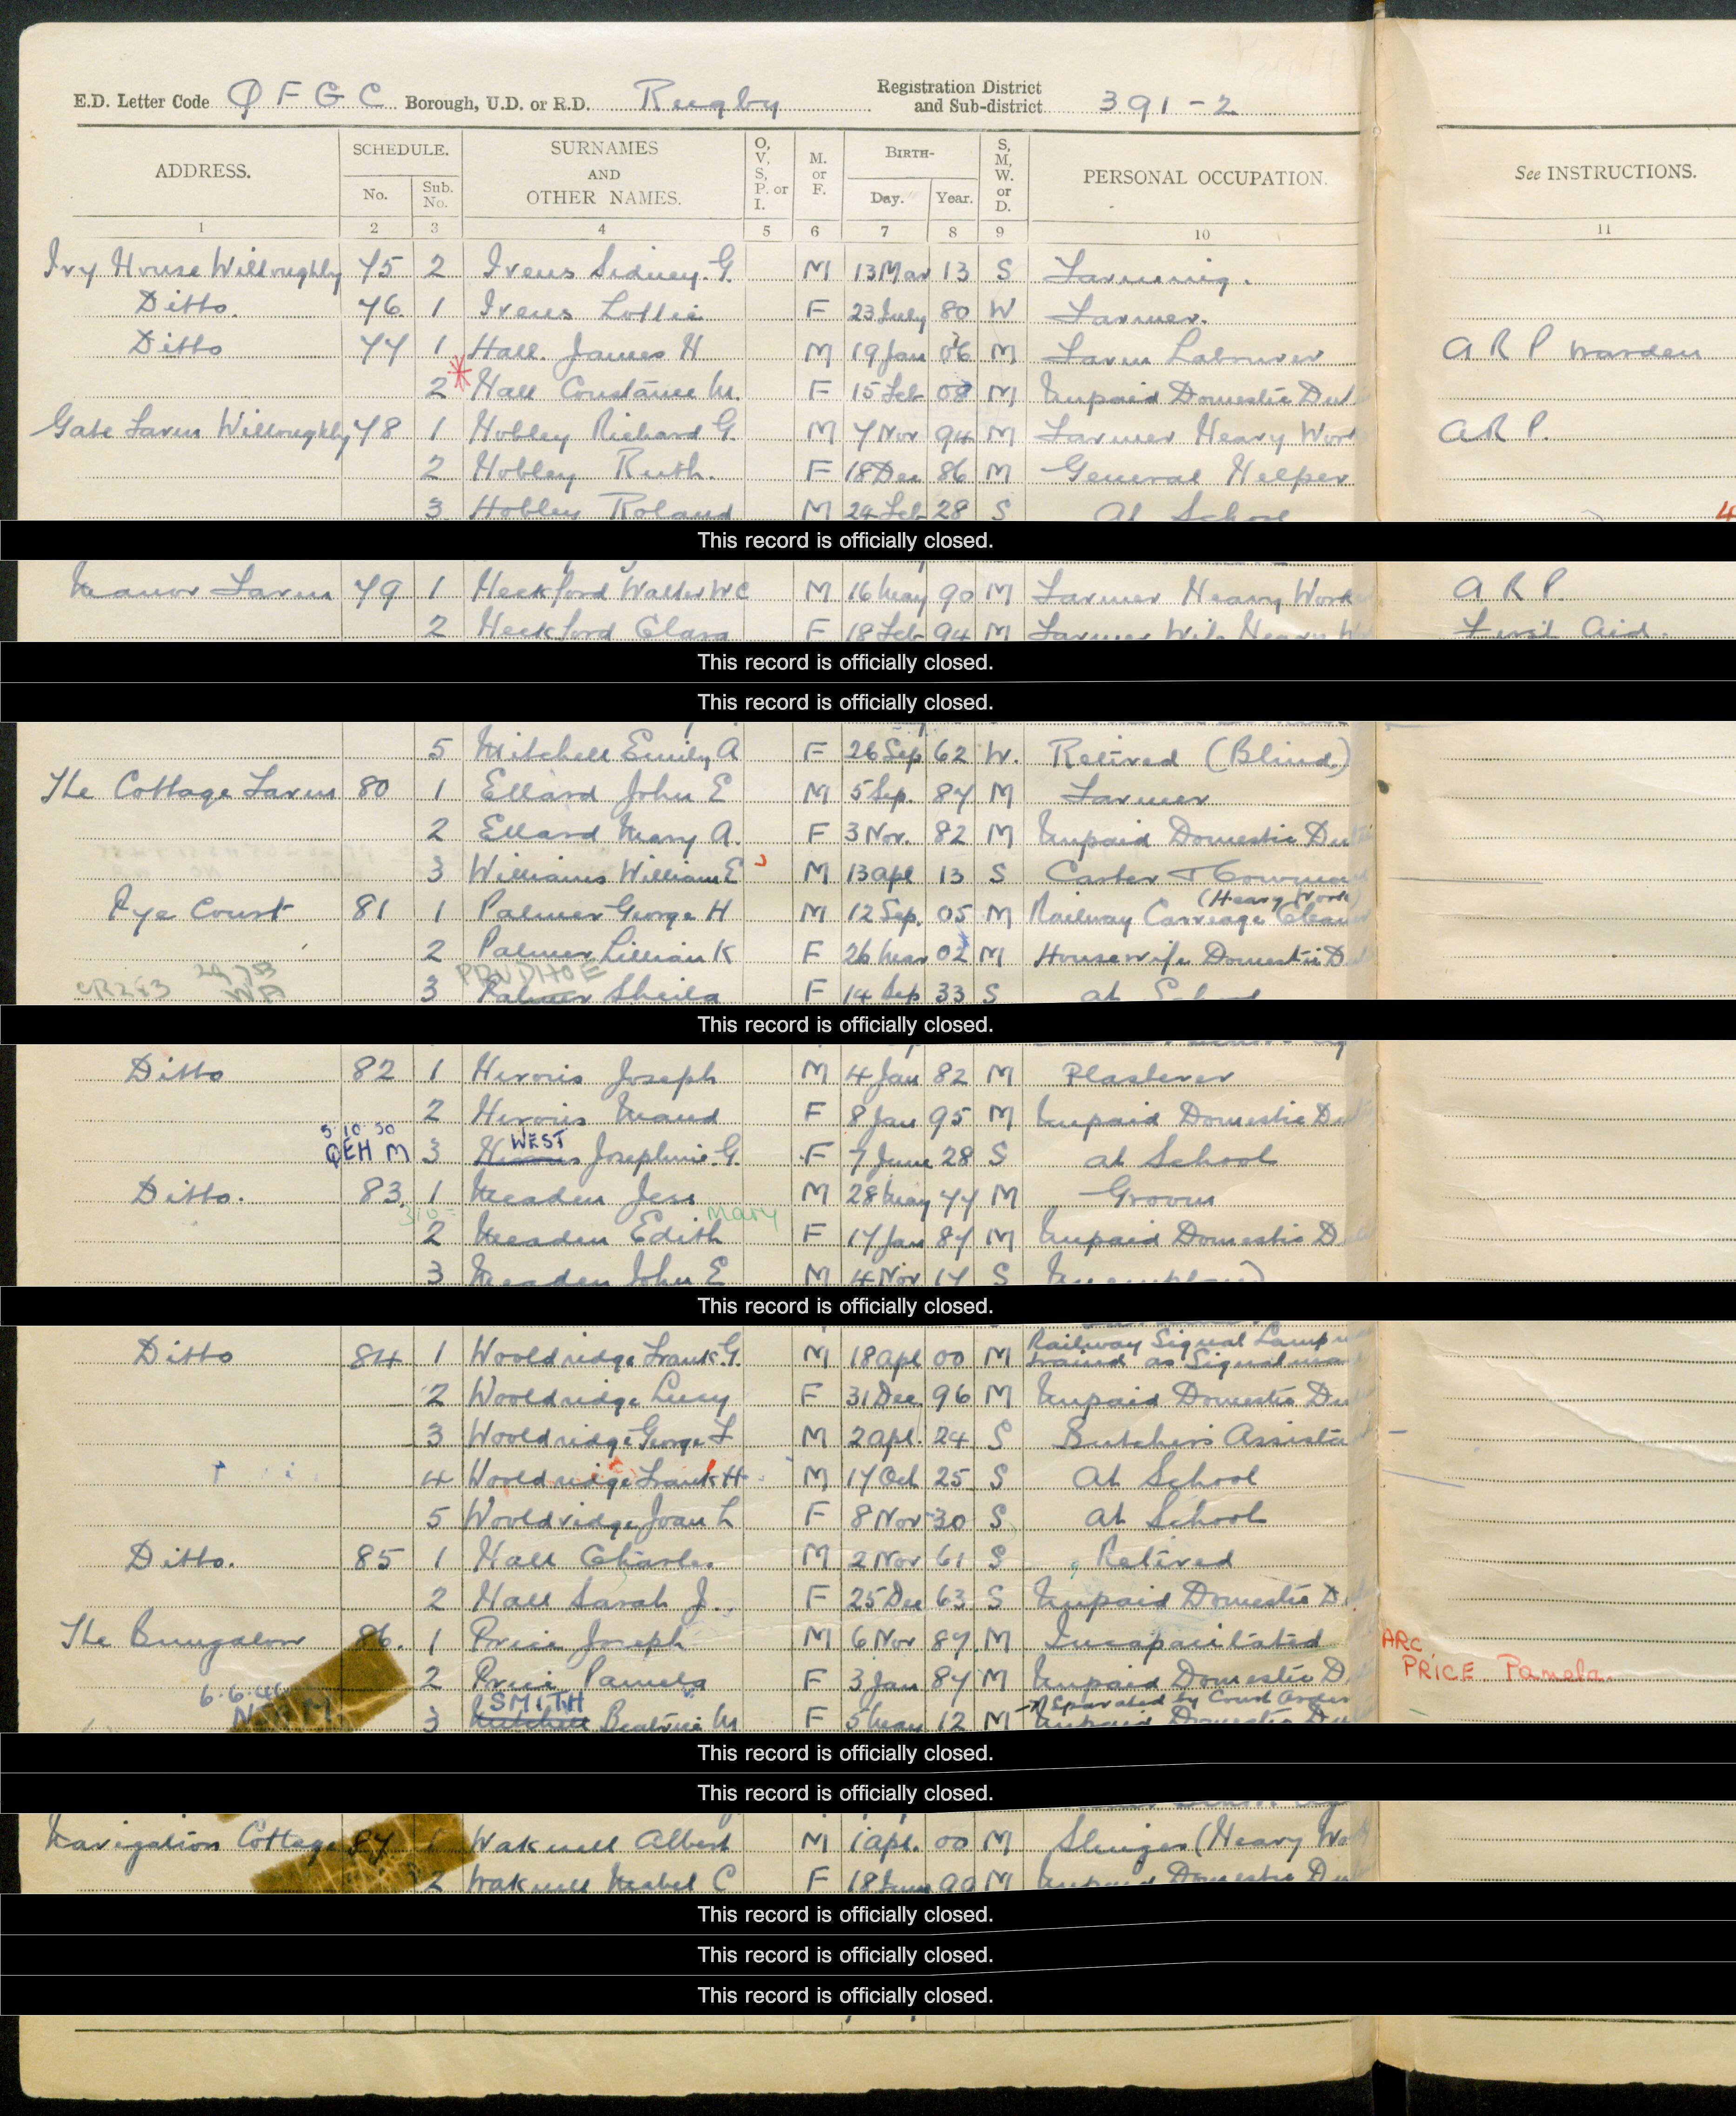 E.D. Letter Code Q F G C Borough, U.D. or R.D. Rugby Registration District and Sub-district 391-2
ADDRESS. SCHEDULE. No. Sub. No. SURNAMES AND OTHER NAMES. O, V, S, P. or I. M. or F. BIRTH- Day. Year. S, M, W. or D. PERSONAL OCCUPATION. See INSTRUCTIONS.
1 2 3 4 5 6 7 8 9 10 11
Ivy House Willoughby 75 2 Ivens Sidney. G. M 13 Mar 13 S Farming.
Ditto. 76 1 Ivens Lottie F 23 July 80 W Farmer.
Ditto 77 1 Hall. James H M 19 Jan 06 M Farm Labourer A R P Warden
2 Hall Constance M. F 15 Feb 08 M Unpaid Domestic Dut
Gate Farm Willoughby 78 1 Hobley Richard G. M 7 Nov 94 M Farmer Heavy Work A R P.
2 Hobley Ruth. F 18 Dec 86 M General Helper
3 Hobley Roland M 24 Feb 28 S At School
This record is officially closed.
Manor Farm 79 1 Heckford Walter W C M 16 May 90 M Farmer Heavy Worke A R P.
2 Heckford Clara F 18 Feb 94 M Farmer Wife Heavy W First Aid.
This record is officially closed.
This record is officially closed.
5 Mitchell Emily A F 26 Sep 62 W. Retired (Blind)
The Cottage Farm 80 1 Ellard John E M 5 Sep. 87 M Farmer
2 Ellard Mary A. F 3 Nov. 82 M Unpaid Domestic Du
3 Williams William E M 13 Apl 13 S Carter & Cowman
(Heavy Work)
Pye Court 81 1 Palmer George H M 12 Sep. 05 M Railway Carriage Cleaner
2 Palmer Lillian K F 26 Mar 02 M Housewife Domestic D
PRUDHOE
CR283 WA 3 Palmer Sheila F 14 Sep 33 S at School
This record is officially closed.
Ditto 82 1 Hirons Joseph M 4 Jan 82 M Plasterer
2 Hirons Maud F 8 Jan 95 M Unpaid Domestic Du
5 10 50 WEST
QEH M 3 Hirons Josephine. G. F 7 June 28 S at School
Ditto. 83 1 Meaden Jess M 28 May 77 M Groom
Mary
2 Meaden Edith F 17 Jan 87 M Unpaid Domestic D
3 Meaden John E M 4 Nov 17 S
This record is officially closed.
Railway Signal Lamp
Ditto 84 1 Wooldridge Frank. G. M 18 Apl 00 M trained as Signalman
2 Wooldridge Lucy F 31 Dec. 96 M Unpaid Domestic Du
3 Wooldridge George F M 2 Apl. 24 S Butchers Assista
4 Wooldridge Frank H M 17 Oct 25 S At School
5 Wooldridge Joan L F 8 Nov 30 S at School
Ditto. 85 1 Hall Charles. M 2 Nov 61 S Retired
2 Hall Sarah J. F 25 Dec 63 S Unpaid Domestic D
The Bungalow 86. 1 Price Joseph M 6 Nov 87 M Incapacitated ARC
2 Price Pamela F 3 Jan 87 M Unpaid Domestic D PRICE Pamela.
6.6.4 SMITH Separated by Court Order
3 Mitchell Beatrice M F 5 May 12 M Unpaid Domestic Du
This record is officially closed.
This record is officially closed.
Navigation Cottage 87 1 Waknell Albert M 1 Apl. 00 M Slinger (Heavy Wo
2 Waknell Mabel C F 18 June 00 M Unpaid Domestic Du
This record is officially closed.
This record is officially closed.
This record is officially closed.